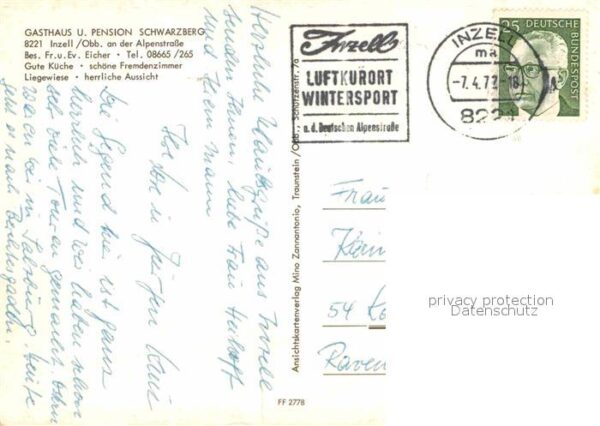 GASTHAUS U. PENSION SCHWARZBERG
8221 Inzell/Obb. an der Alpenstraße
Bes. Fr. u. Ev. Eicher • Tel. 08665/265
Gute Küche • schöne Fremdenzimmer
Liegewiese • herrliche Aussicht
Herzliche Urlaubsgrüße aus Inzell
senden Ihnen, liebe Frau
und Ihrem Mann
Ihre
Die Gegend hier ist ganz
herrlich und wir haben schon
sehr viele Touren gemacht. Gestern
waren wir in Salzburg, heute
geht es nach Berchtesgaden.
Ansichtskartenverlag Mino Zannantonio, Traunstein/Obb., Schützenstr. 7a
FF 2778
Inzell
LUFTKURORT
WINTERSPORT
a. d. Deutschen Alpenstraße
INZELL
ma
-7.4.77-18
8221
25 DEUTSCHE
BUNDESPOST
Frau
54 Ko
Raven
privacy protection
Datenschutz